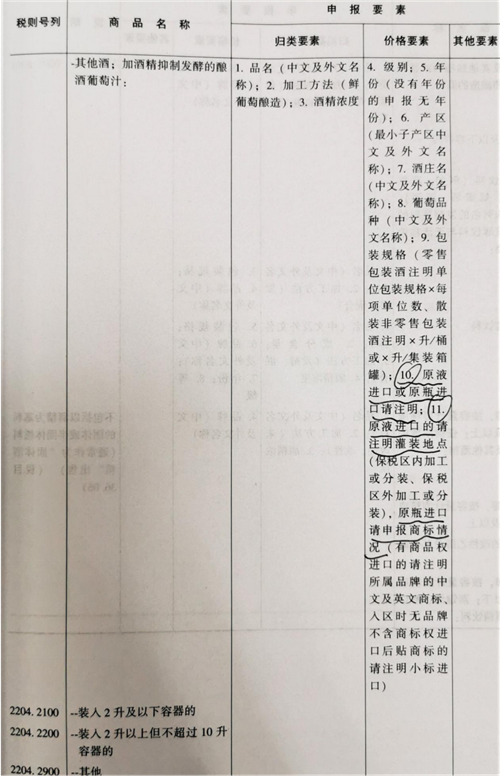 税则号列
商品名称
申报要素
归类要素
价格要素
其他要素
-其他酒；加酒精抑制发酵的酿
酒葡萄汁：
1. 品名（中文及外文名
称）；2. 加工方法（鲜
葡萄酿造）；3. 酒精浓度
4. 级别；5. 年
份（没有年份
的申报无年
份）；6. 产区
（最小子产区中
文及外文名
称）；7. 酒庄名
（中文及外文名
称）；8. 葡萄品
种（中文及外
文名称）；9. 包
装规格（零售
包装酒注明单
位包装规格×每
项单位数、散
装非零售包装
酒注明×升/桶
或×升/集装箱
罐）；10. 原液
进口或原瓶进
口请注明；11.
原液进口的请
注明灌装地点
（保税区内加工
或分装、保税
区外加工或分
装），原瓶进口
请申报商标情
况（有商品权
进口的请注明
所属品牌的中
文及英文商标、
入区时无品牌
不含商标权进
口后贴商标的
请注明小标进
口）
2204.2100
--装入2升及以下容器的
2204.2200
--装入2升以上但不超过10升
容器的
2204.2900
--其他